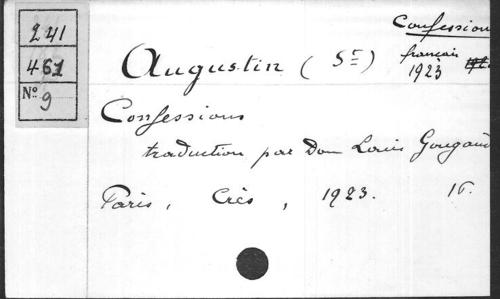 241
461
Nº 9
Confession
français
1923
Augustin (St)
Confessions
traduction par Dom Louis Gougaud
Paris, Crès, 1923. 16.